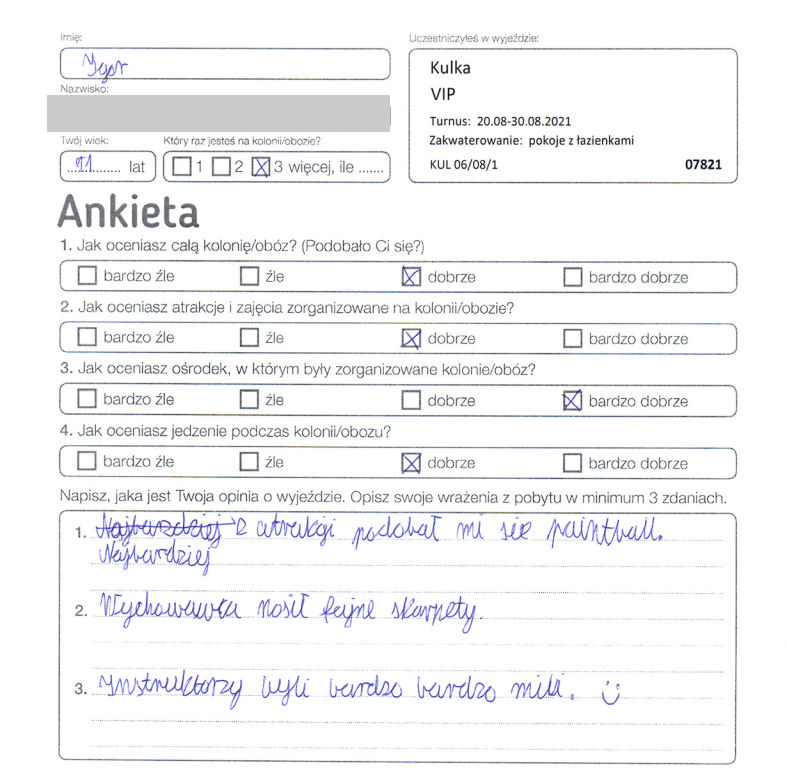 Imię:
Ygor
Nazwisko:
Twój wiek:
11 lat
Który raz jesteś na kolonii/obozie?
1 2 3 więcej, ile .......
Uczestniczyłeś w wyjeździe:
Kulka
VIP
Turnus: 20.08-30.08.2021
Zakwaterowanie: pokoje z łazienkami
KUL 06/08/1 07821
Ankieta
1. Jak oceniasz całą kolonię/obóz? (Podobało Ci się?)
bardzo źle źle dobrze bardzo dobrze
2. Jak oceniasz atrakcje i zajęcia zorganizowane na kolonii/obozie?
bardzo źle źle dobrze bardzo dobrze
3. Jak oceniasz ośrodek, w którym były zorganizowane kolonie/obóz?
bardzo źle źle dobrze bardzo dobrze
4. Jak oceniasz jedzenie podczas kolonii/obozu?
bardzo źle źle dobrze bardzo dobrze
Napisz, jaka jest Twoja opinia o wyjeździe. Opisz swoje wrażenia z pobytu w minimum 3 zdaniach.
1. Najbardziej z atrakcji podobał mi się paintball.
Najbardziej
2. Wychowawca nosił fajne skarpety.
3. Ynstruktorzy byli bardzo bardzo mili. :)